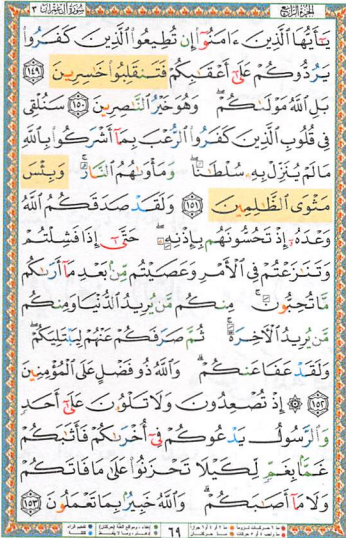 الجزء الرابع سورة آل عمران ٣
يَٰٓأَيُّهَا ٱلَّذِينَ ءَامَنُوٓا۟ إِن تُطِيعُوا۟ ٱلَّذِينَ كَفَرُوا۟
يَرُدُّوكُمْ عَلَىٰٓ أَعْقَٰبِكُمْ فَتَنقَلِبُوا۟ خَٰسِرِينَ ١٤٩
بَلِ ٱللَّهُ مَوْلَىٰكُمْ ۖ وَهُوَ خَيْرُ ٱلنَّٰصِرِينَ ١٥٠ سَنُلْقِى
فِى قُلُوبِ ٱلَّذِينَ كَفَرُوا۟ ٱلرُّعْبَ بِمَآ أَشْرَكُوا۟ بِٱللَّهِ
مَا لَمْ يُنَزِّلْ بِهِۦ سُلْطَٰنًا ۖ وَمَأْوَىٰهُمُ ٱلنَّارُ ۚ وَبِئْسَ
مَثْوَى ٱلظَّٰلِمِينَ ١٥١ وَلَقَدْ صَدَقَكُمُ ٱللَّهُ
وَعْدَهُۥٓ إِذْ تَحُسُّونَهُم بِإِذْنِهِۦ ۖ حَتَّىٰٓ إِذَا فَشِلْتُمْ
وَتَنَٰزَعْتُمْ فِى ٱلْأَمْرِ وَعَصَيْتُم مِّنۢ بَعْدِ مَآ أَرَىٰكُم
مَّا تُحِبُّونَ ۚ مِنكُم مَّن يُرِيدُ ٱلدُّنْيَا وَمِنكُم
مَّن يُرِيدُ ٱلْءَاخِرَةَ ۚ ثُمَّ صَرَفَكُمْ عَنْهُمْ لِيَبْتَلِيَكُمْ ۖ
وَلَقَدْ عَفَا عَنكُمْ ۗ وَٱللَّهُ ذُو فَضْلٍ عَلَى ٱلْمُؤْمِنِينَ
١٥٢ ۞ إِذْ تُصْعِدُونَ وَلَا تَلْوُۥنَ عَلَىٰٓ أَحَدٍ
وَٱلرَّسُولُ يَدْعُوكُمْ فِىٓ أُخْرَىٰكُمْ فَأَثَٰبَكُمْ
غَمًّۢا بِغَمٍّ لِّكَيْلَا تَحْزَنُوا۟ عَلَىٰ مَا فَاتَكُمْ
وَلَا مَآ أَصَٰبَكُمْ ۗ وَٱللَّهُ خَبِيرٌۢ بِمَا تَعْمَلُونَ ١٥٣
٦٩